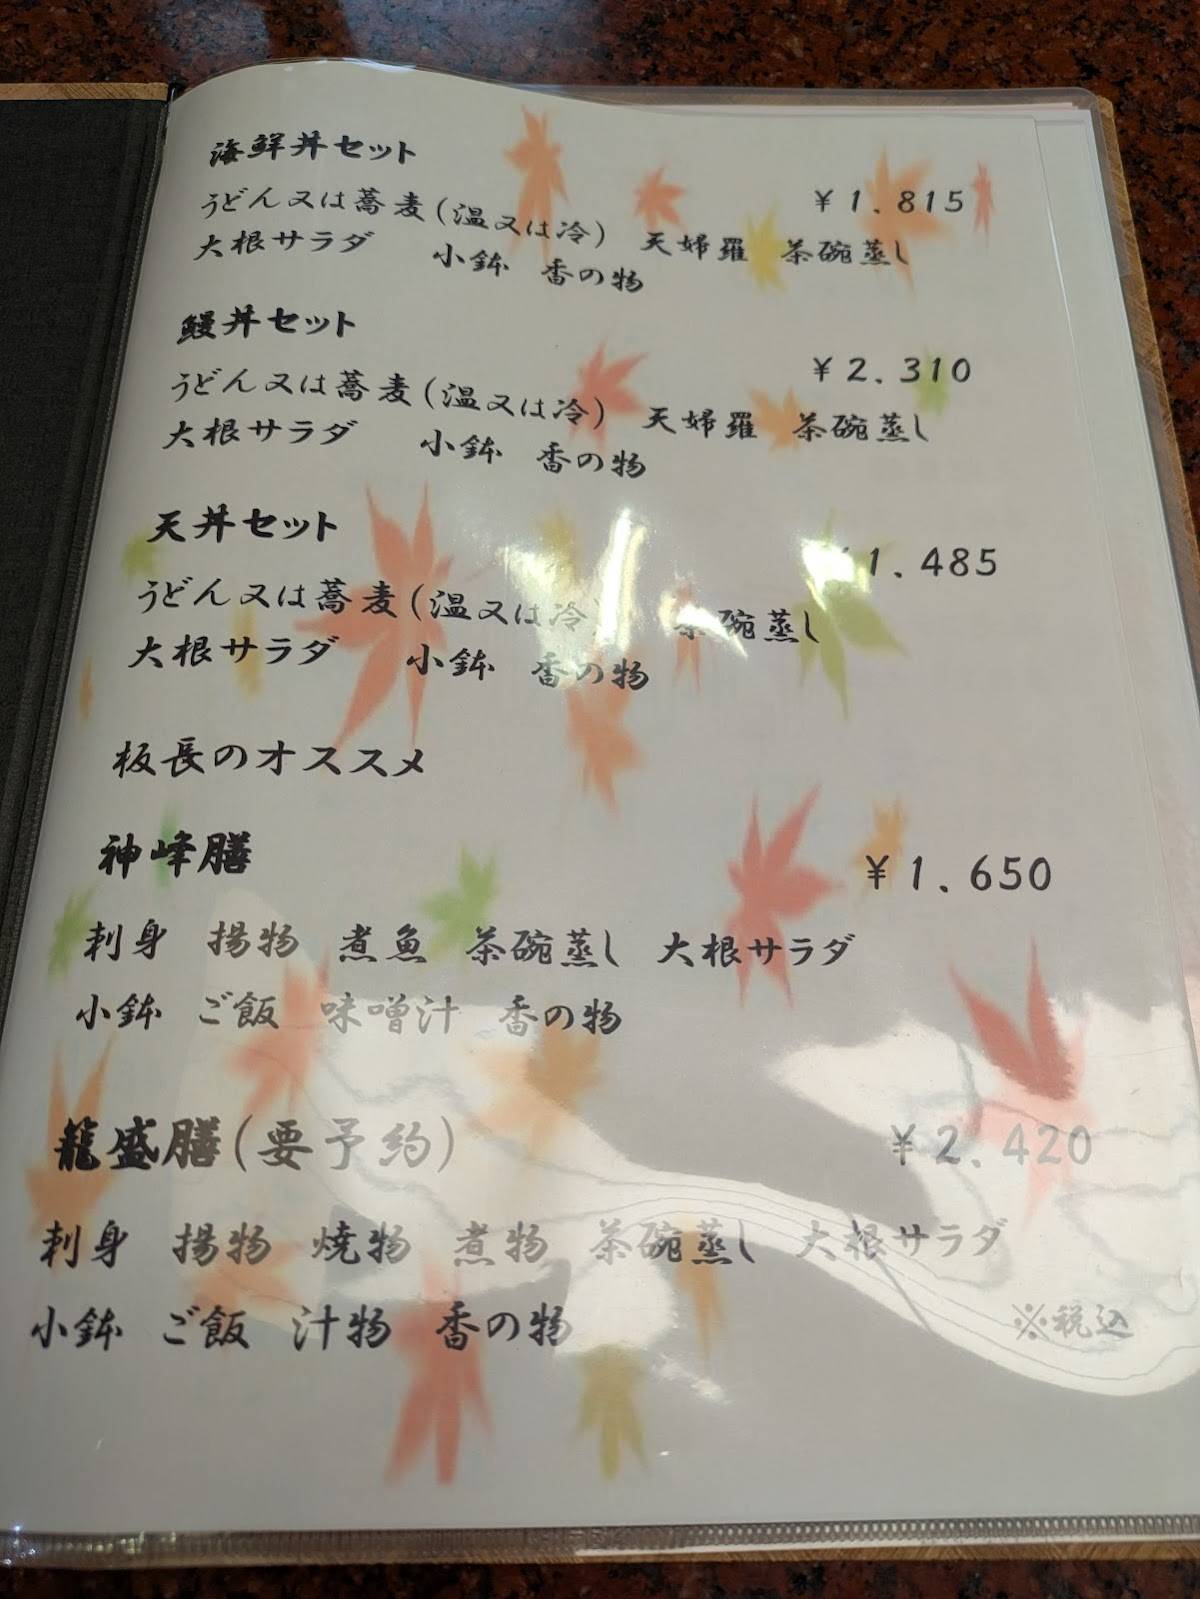 海鮮丼セット
うどん又は蕎麦(温又は冷) 天婦羅 茶碗蒸し ￥1.815
大根サラダ 小鉢 香の物
鰻丼セット
うどん又は蕎麦(温又は冷) 天婦羅 茶碗蒸し ￥2.310
大根サラダ 小鉢 香の物
天丼セット
うどん又は蕎麦(温又は冷) 茶碗蒸し ￥1.485
大根サラダ 小鉢 香の物
板長のオススメ
神峰膳 ￥1.650
刺身 揚物 煮魚 茶碗蒸し 大根サラダ
小鉢 ご飯 味噌汁 香の物
龍盛膳(要予約) ￥2.420
刺身 揚物 焼物 煮物 茶碗蒸し 大根サラダ
小鉢 ご飯 汁物 香の物
※税込